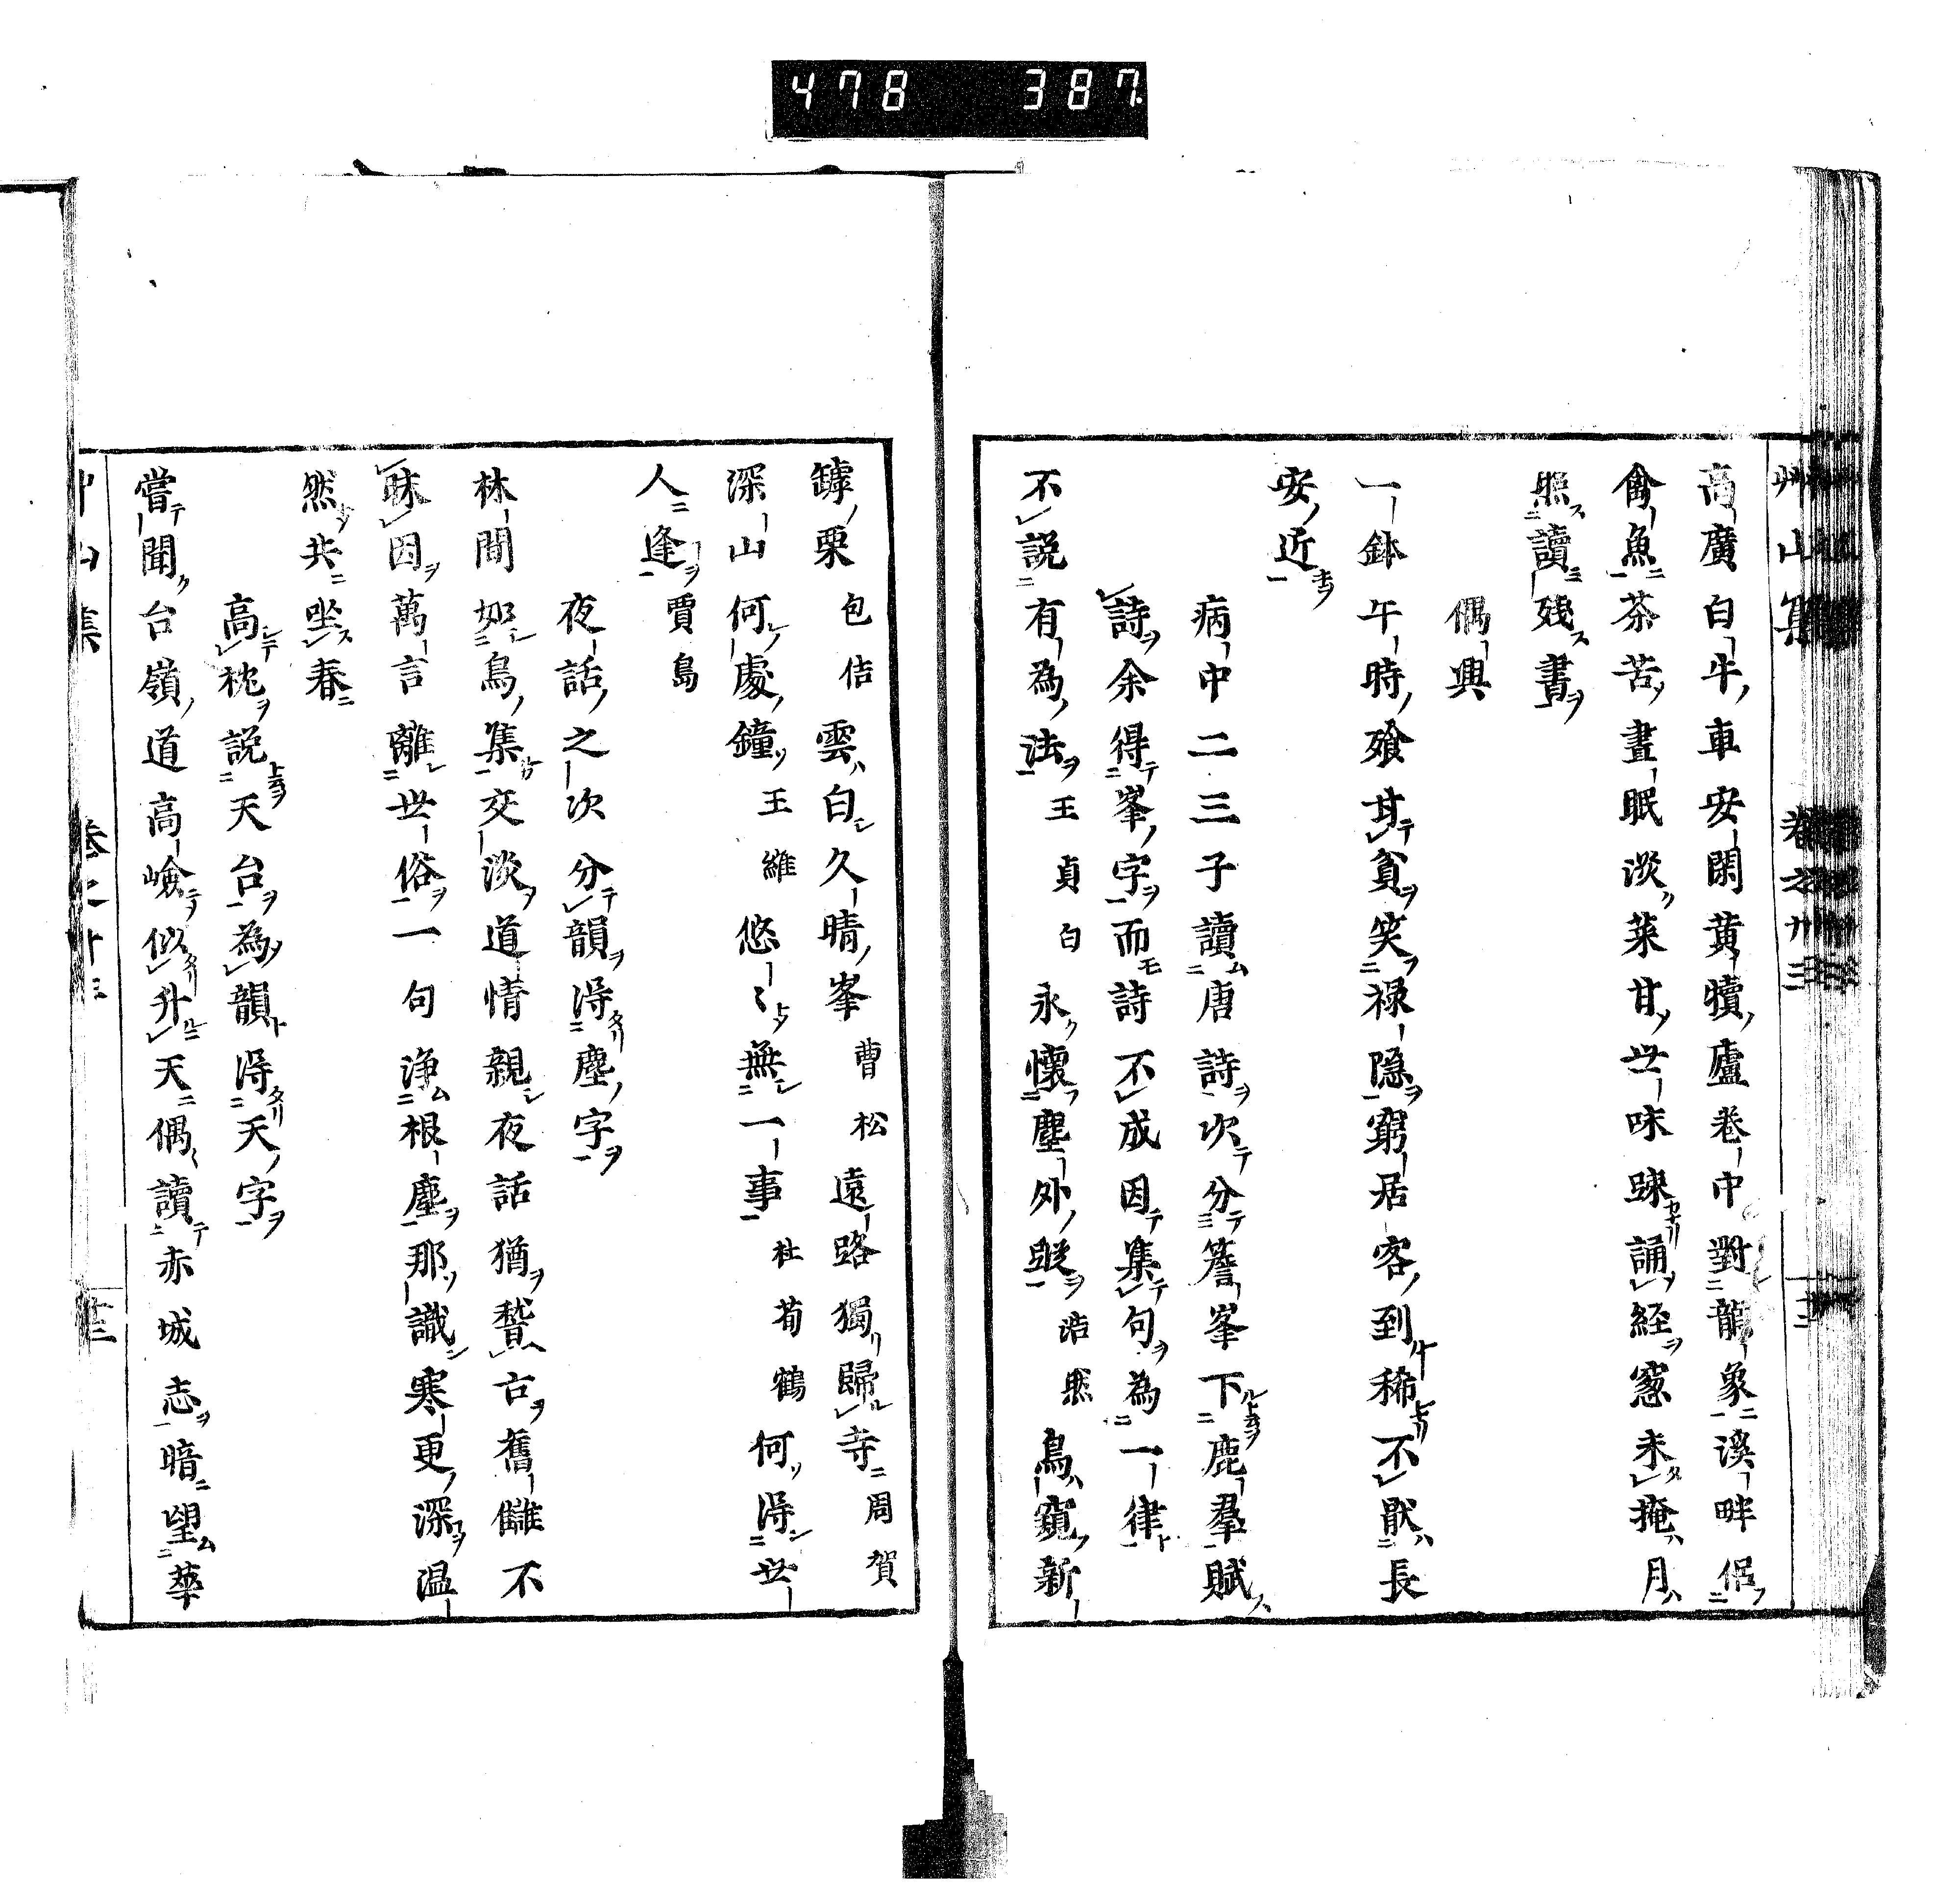 478 387
艸山集 卷之廿三
高廣白牛車安閑黄犢廬巷中對龍象溪畔侶
禽魚茶苦晝眠淡菜甘世味踈誦経窓未掩月
照讀残書
偶興
一鉢午時飱甘貧笑禄隠窮居客到稀不厭長
安近
病中二三子讀唐詩次分簷峯下鹿羣賦
詩余得峯字而詩不成因集句為一律
不説有為法王貞白永懐塵外蹤浩然鳥窺新
罅栗包佶雲白久晴峯曹松遠路獨歸寺周賀
深山何處鐘王維悠〻無一事杜荀鶴何得世
人逢賈島
夜話之次分韻得塵字
林間如鳥集交淡道情親夜話猶聱古舊讎不
昧因萬言離世俗一句浄根塵那識寒更深温
然共坐春
高枕説天台為韻得天字
嘗聞台嶺道高嶮似升天偶讀赤城志暗望華